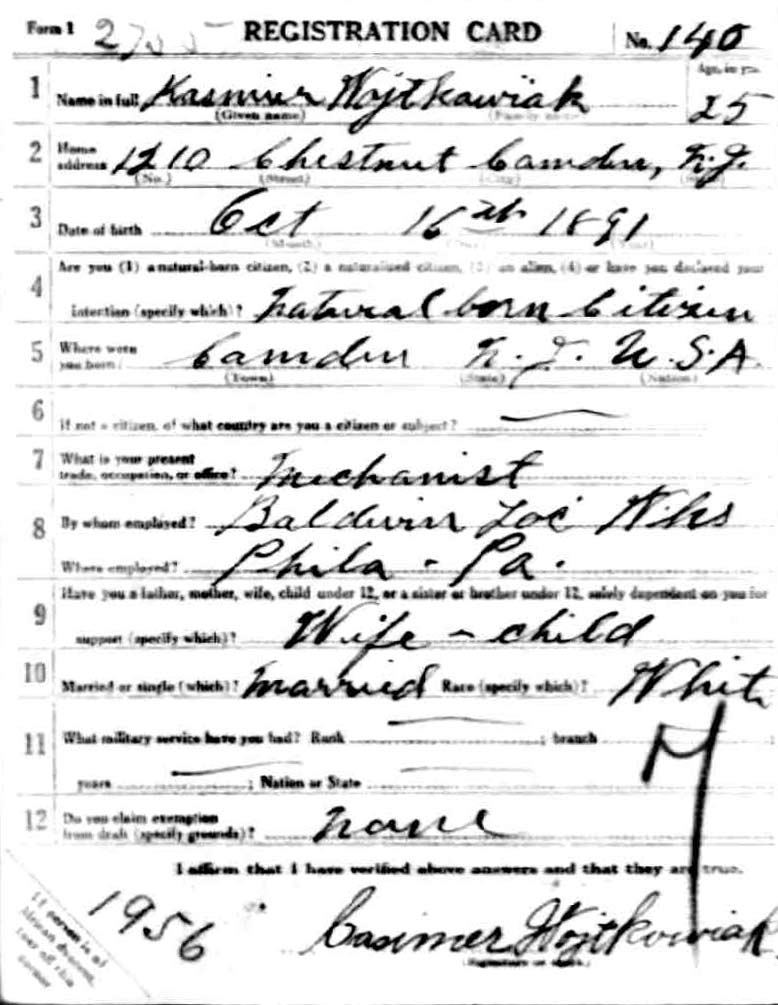 Form 1 REGISTRATION CARD No. 140
1 Name in full Kasmiur Wojtkawiak Age, in yrs. 25
(Given name) (Family name)
2 Home address 1210 Chestnut Camden, N.J.
(No.) (Street) (City) (State)
3 Date of birth Oct 16th 1891
(Month) (Day) (Year)
4 Are you (1) a natural-born citizen, (2) a naturalized citizen, (3) an alien, (4) or have you declared your
intention (specify which)? natural born Citizen
5 Where were you born? Camden N.J. U.S.A.
(Town) (State) (Nation)
6 If not a citizen, of what country are you a citizen or subject?
7 What is your present trade, occupation, or office? Mechanist
8 By whom employed? Baldwin Loc Wks
Where employed? Phila - Pa.
9 Have you a father, mother, wife, child under 12, or a sister or brother under 12, solely dependent on you for
support (specify which)? Wife - child
10 Married or single (which)? Married Race (specify which)? White
11 What military service have you had? Rank ; branch ;
years ; Nation or State
12 Do you claim exemption from draft (specify grounds)? none
I affirm that I have verified above answers and that they are true.
1956 Casimer Wojtkowiak
(Signature or mark)
If person is of
African descent,
tear off this
corner